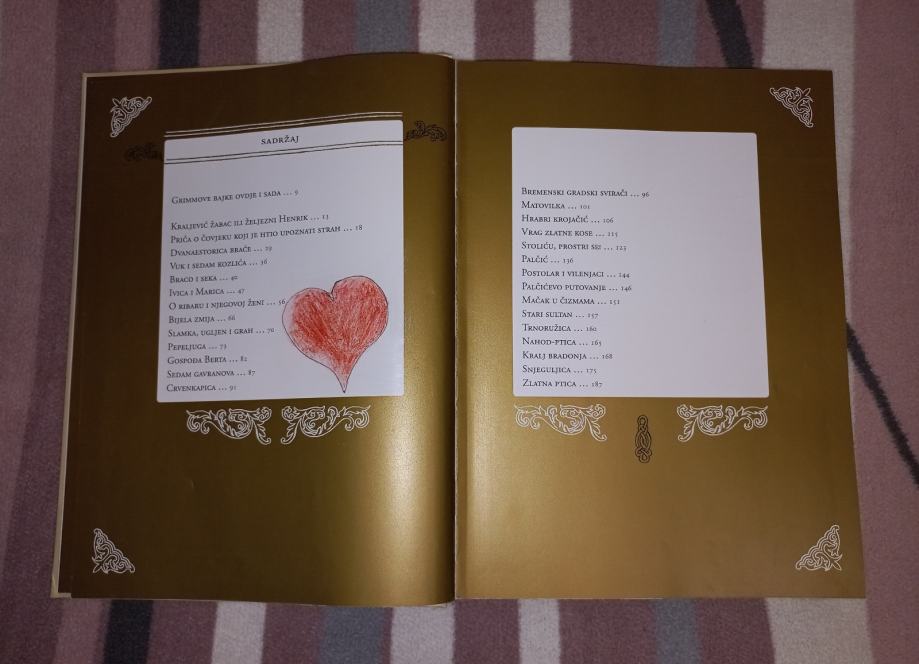 SADRŽAJ
GRIMMOVE BAJKE OVDJE I SADA ... 9
KRALJEVIĆ ŽABAC ILI ŽELJEZNI HENRIK ... 13
PRIČA O ČOVJEKU KOJI JE HTIO UPOZNATI STRAH ... 18
DVANAESTORICA BRAĆE ... 29
VUK I SEDAM KOZLIĆA ... 36
BRACO I SEKA ... 40
IVICA I MARICA ... 47
O RIBARU I NJEGOVOJ ŽENI ... 56
BIJELA ZMIJA ... 66
SLAMKA, UGLJEN I GRAH ... 70
PEPELJUGA ... 73
GOSPOĐA BERTA ... 82
SEDAM GAVRANOVA ... 87
CRVENKAPICA ... 91
BREMENSKI GRADSKI SVIRAČI ... 96
MATOVILKA ... 101
HRABRI KROJAČIĆ ... 106
VRAG ZLATNE KOSE ... 115
STOLIĆU, PROSTRI SE! ... 123
PALČIĆ ... 136
POSTOLAR I VILENJACI ... 144
PALČIĆEVO PUTOVANJE ... 146
MAČAK U ČIZMAMA ... 151
STARI SULTAN ... 157
TRNORUŽICA ... 160
NAHOD-PTICA ... 165
KRALJ BRADONJA ... 168
SNJEGULJICA ... 175
ZLATNA PTICA ... 187